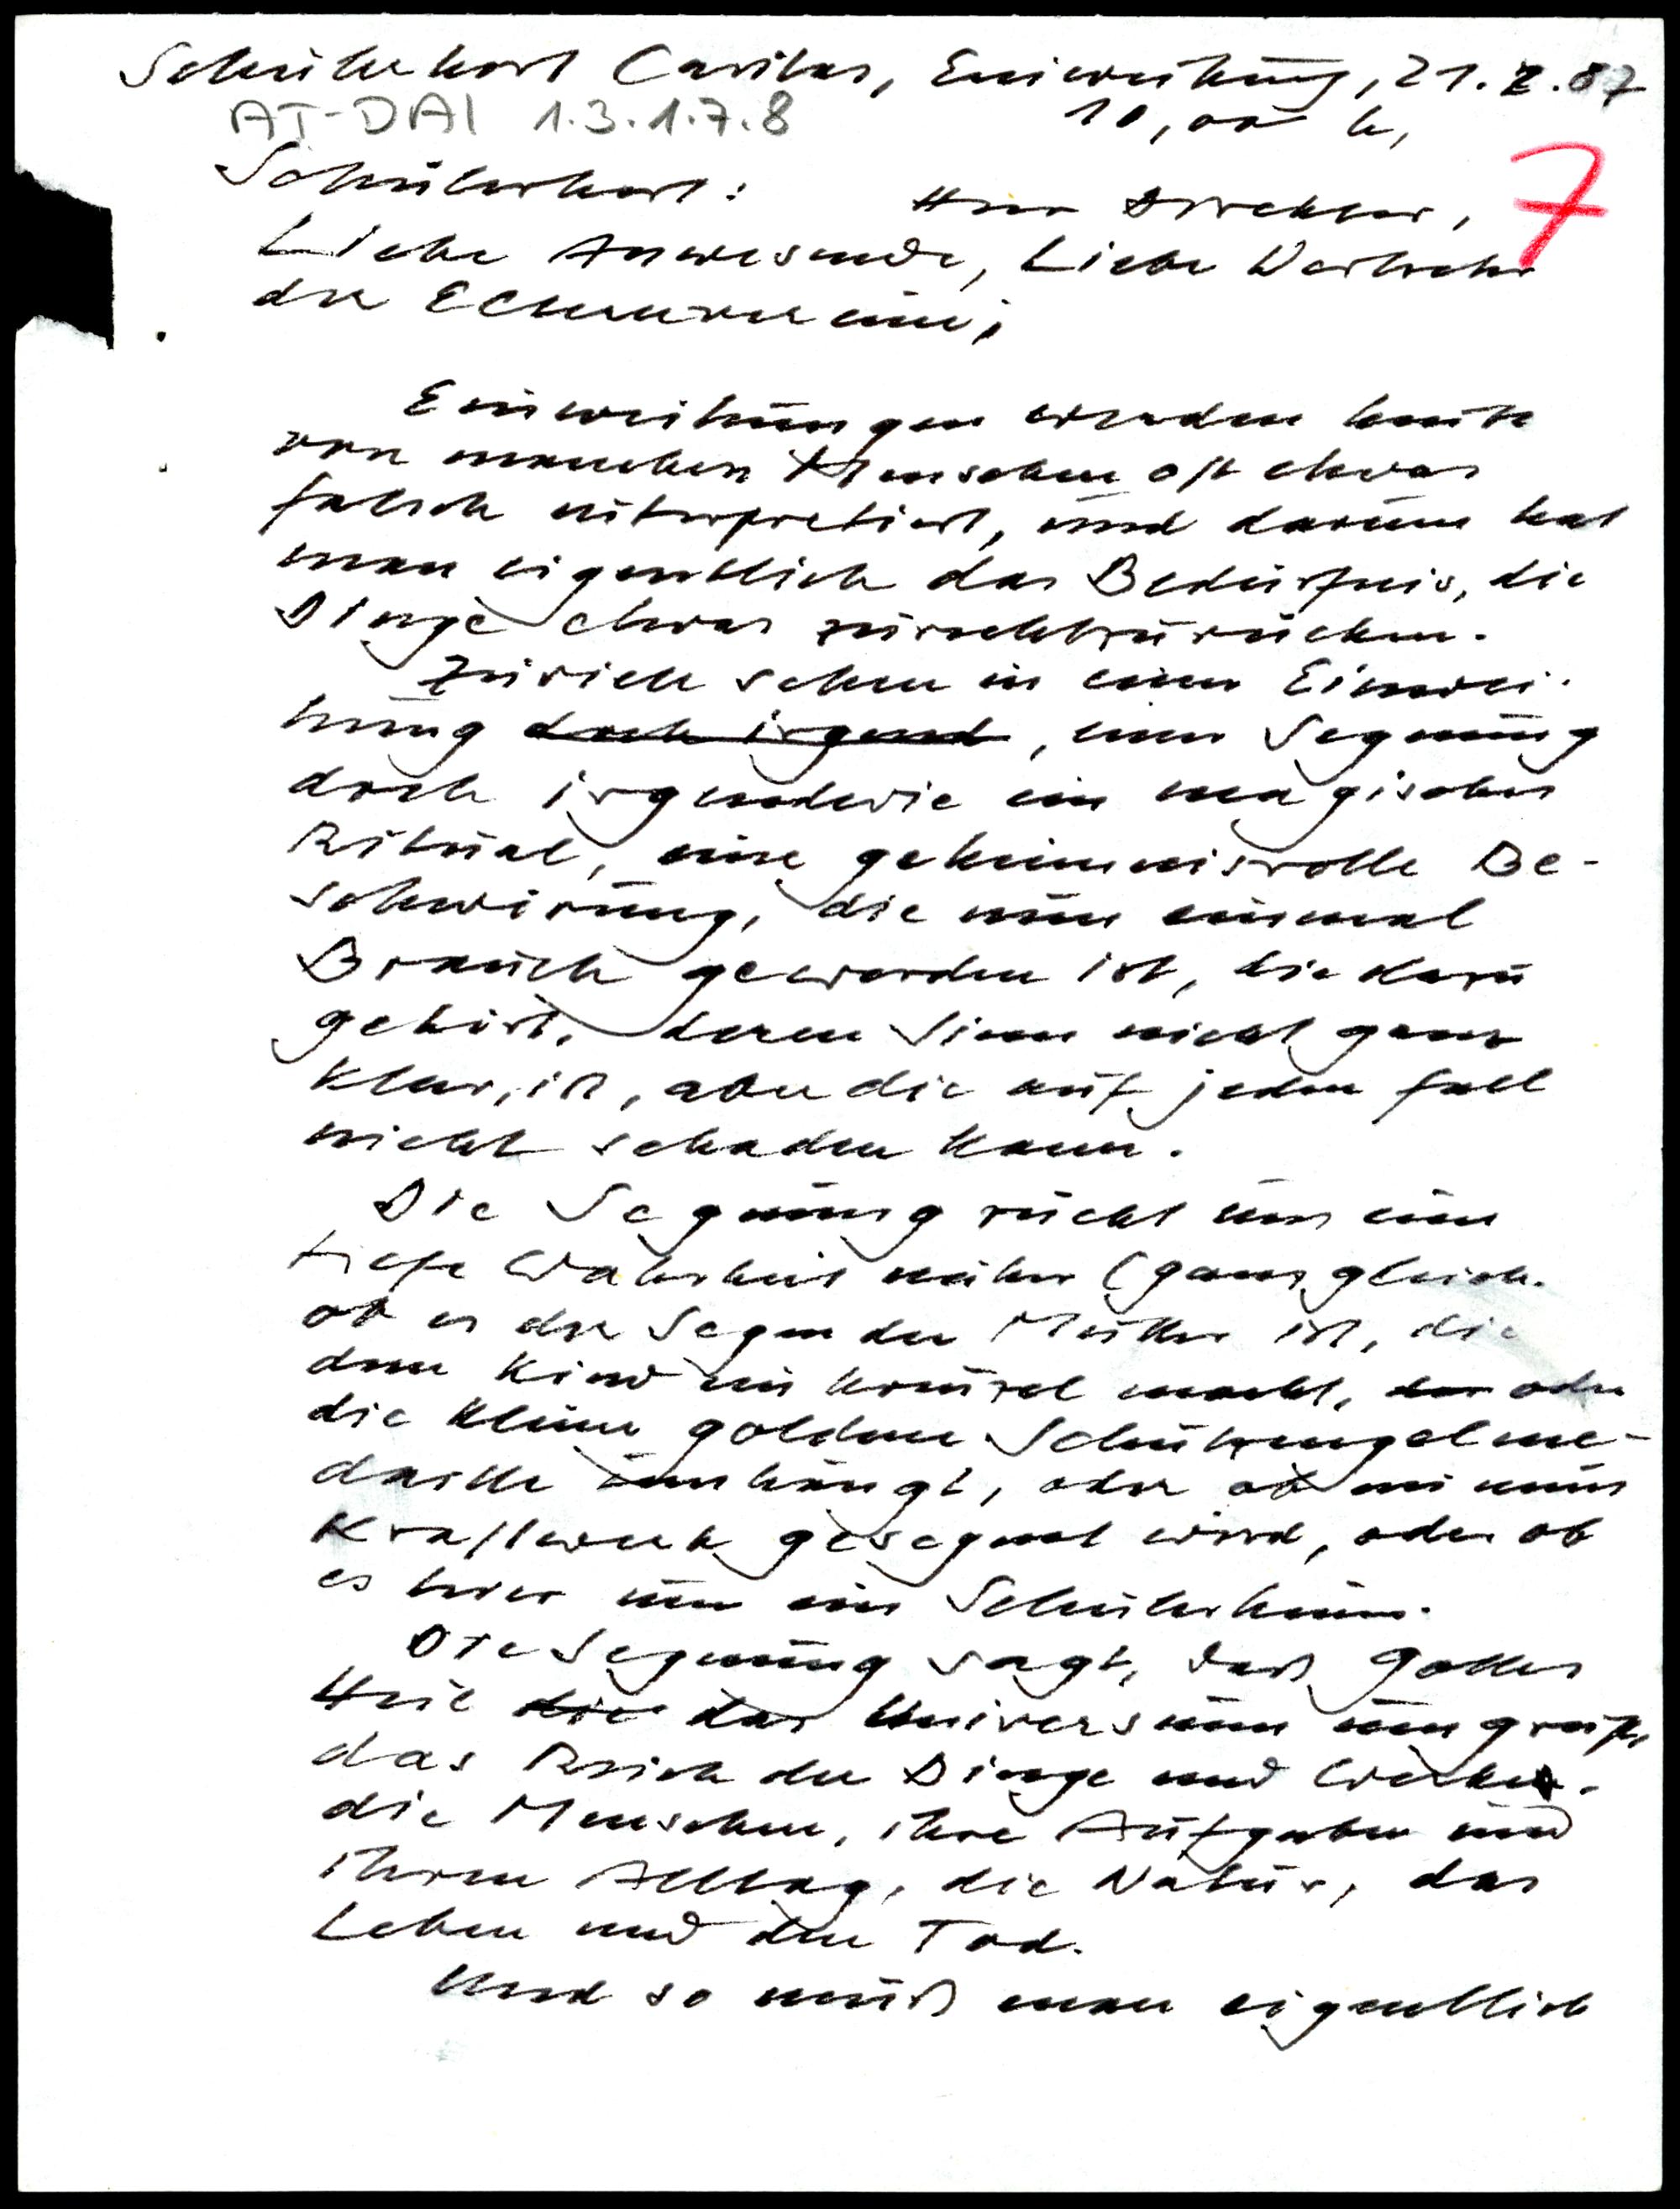 Schülerhort Caritas, Einweihung, 21.2.87
AT-DAI 1.3.1.7.8 10,00 h,
7
Schülerhort: Herr Direktor,
Liebe Anwesende, Liebe Vertreter
der
Einweihungen werden heute
von manchen Menschen oft etwas
falsch interpretiert, und darum hat
man eigentlich das Bedürfnis, die
Dinge etwas zurechtzurücken.
Zuviele sehen in einer Einwei-
hung doch irgend, einer Segnung
doch irgendwie ein magisches
Ritual, eine geheimnisvolle Be-
schwörung, die nun einmal
Brauch geworden ist, die dazu
gehört, deren Sinn nicht ganz
klar ist, aber die auf jeden Fall
nicht schaden kann.
Die Segnung rückt uns eine
tiefe Wahrheit näher (ganz gleich.
ob es der Segen der Mutter ist, die
dem Kind ein Kreuzel macht, oder
die kleine goldene Schutzengelme-
daille umhängt, oder ob ein neues
Kraftwerk gesegnet wird, oder ob
es hier um ein Schülerheim.
Die Segnung sagt, daß Gottes
Heil die das Universum umgreift,
das Reich der Dinge und Werke.
die Menschen, ihre Aufgaben und
ihren Alltag, die Natur, das
Leben und den Tod.
Und so muß man eigentlich